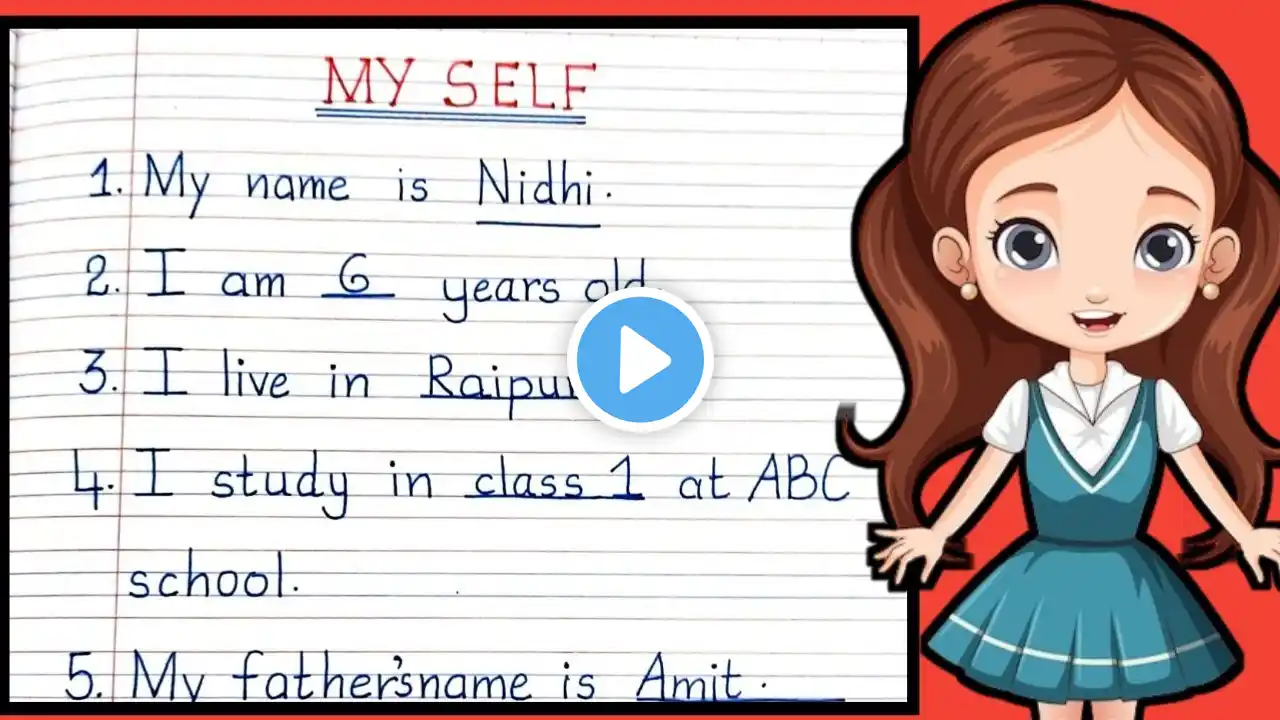 MY SELF
1. My name is Nidhi.
2. I am 6 years old.
3. I live in Raipur
4. I study in class 1 at ABC
school.
5. My father's name is Amit.